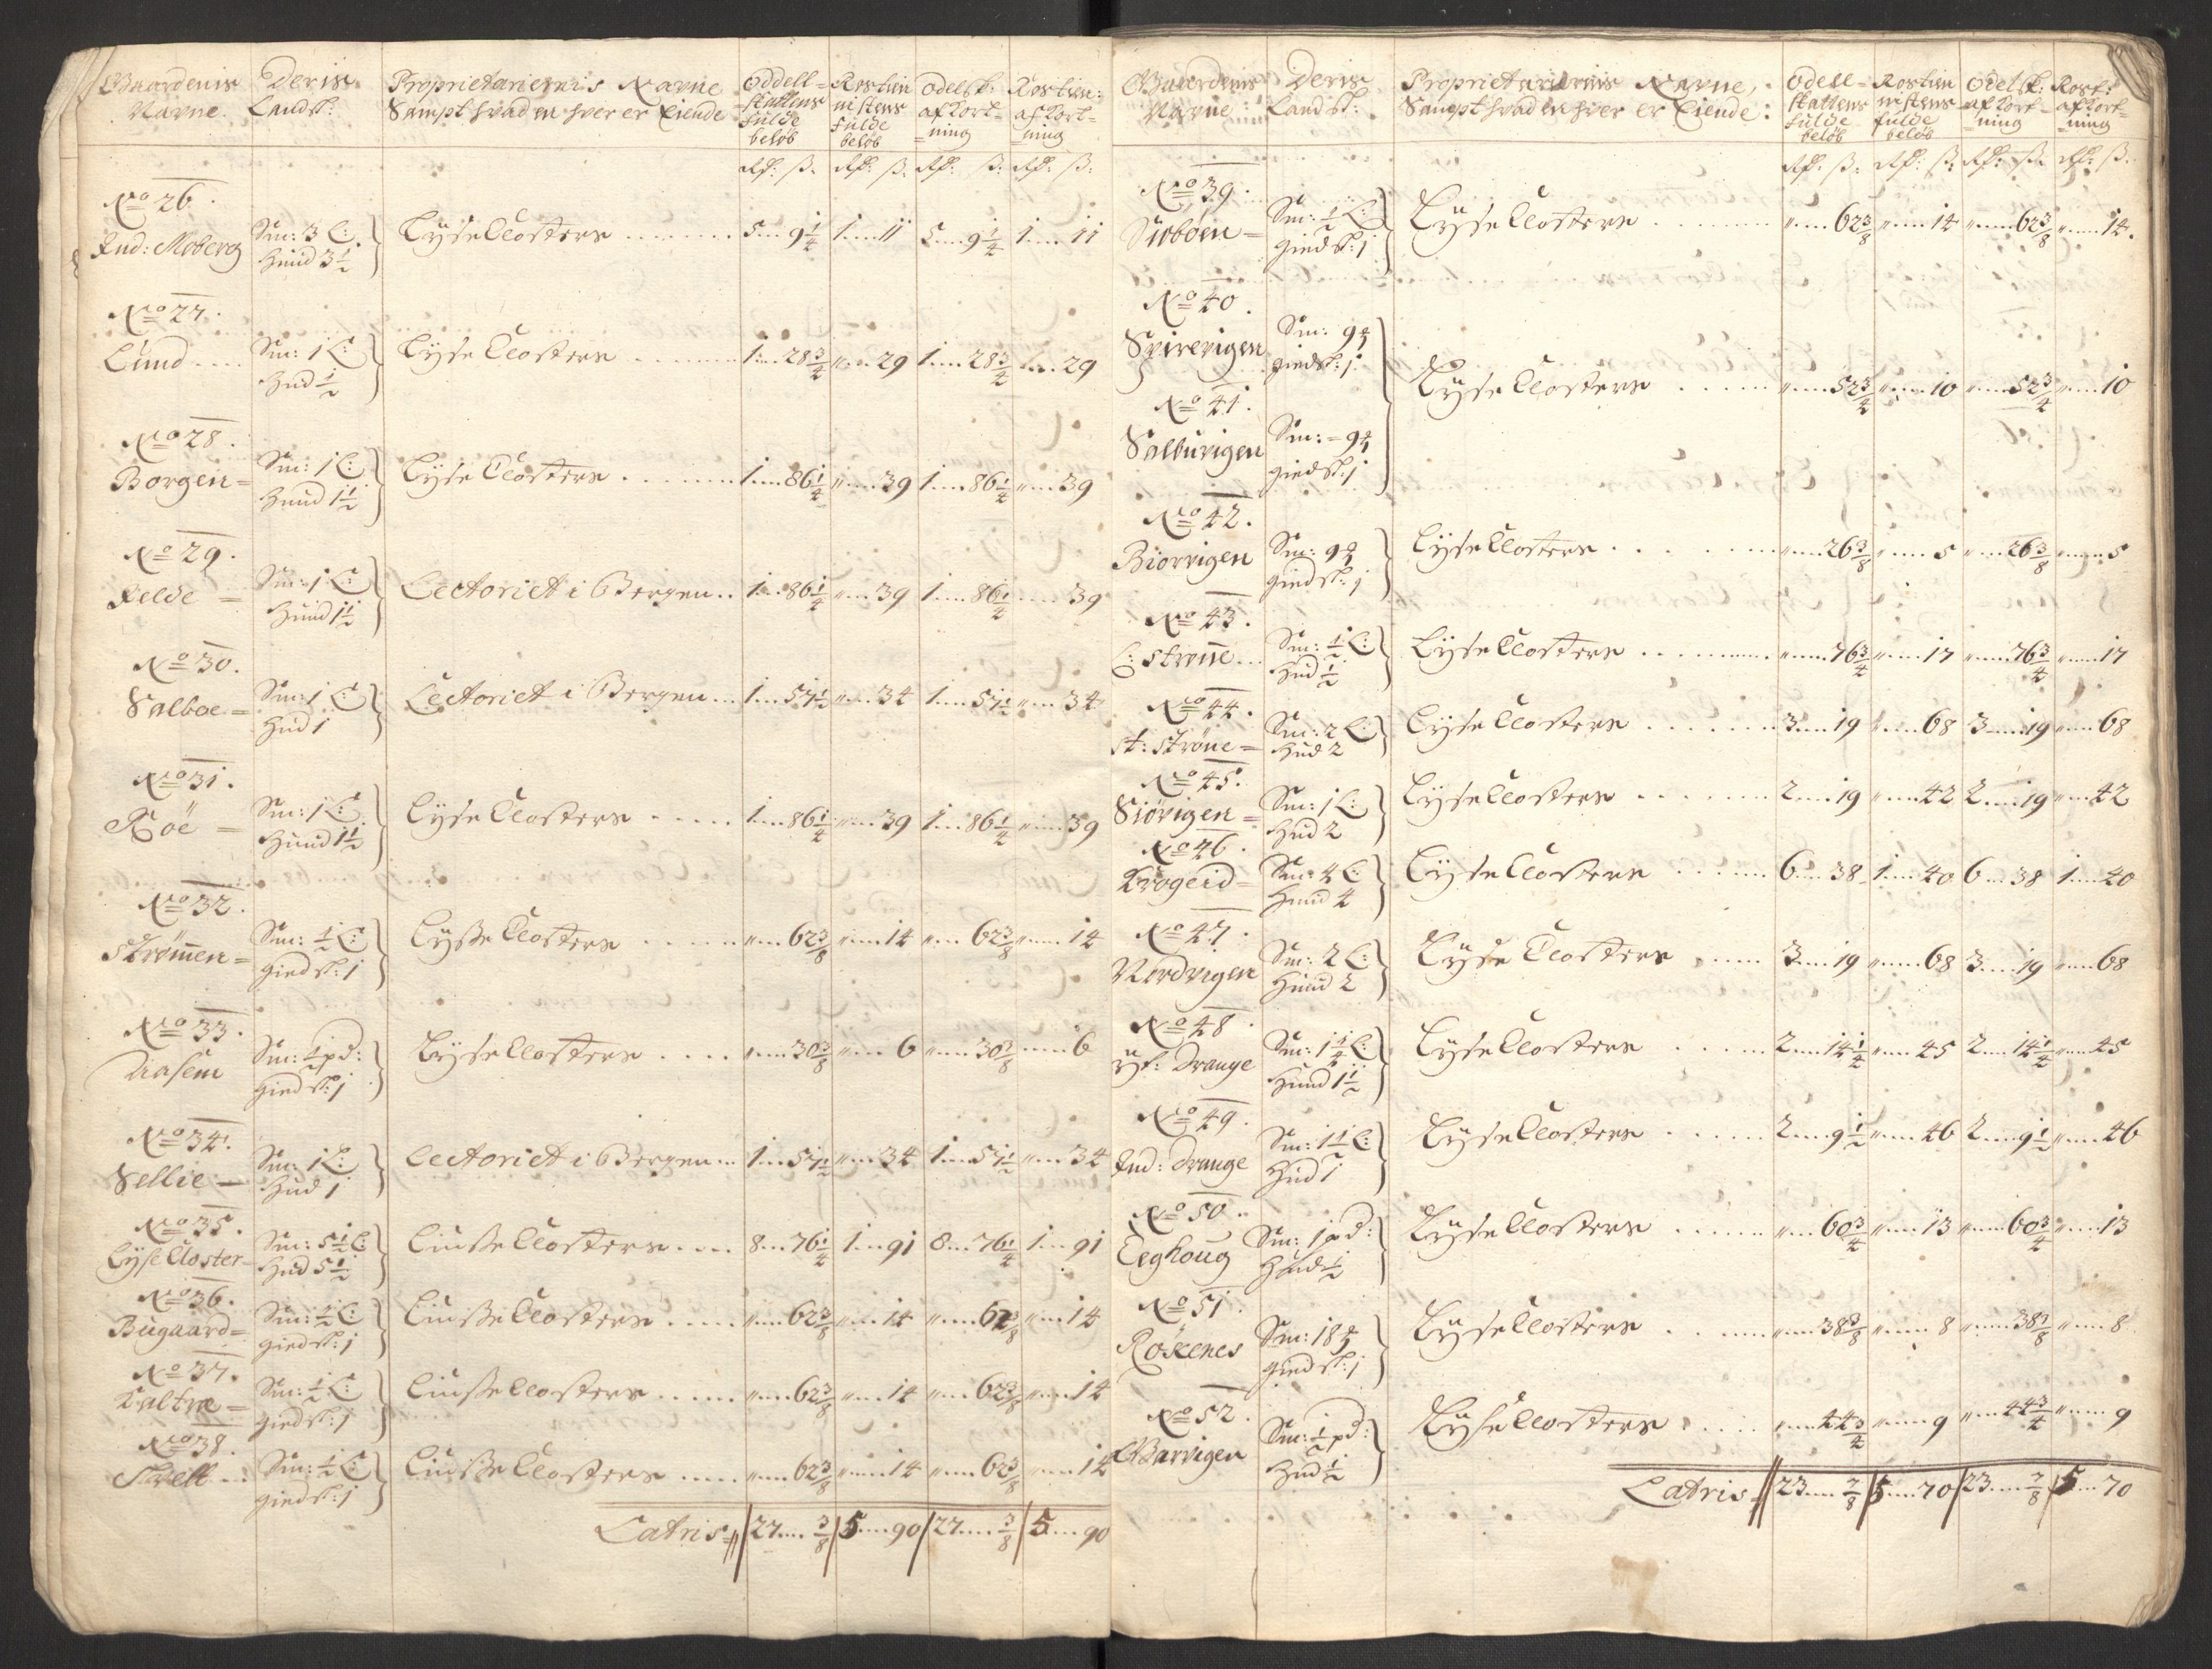 Gaardenis Navne. | Deris Landsk: | Proprietariernis Navne Sampt hvad en hver er Eiende | Oddell=skattens fulde beløb | Rostienistens fulde beløb | Odelsk: afkort=ning | Rostien: afkort=ning
Rd: ß. | Rd: ß. | Rd: ß. | Rd: ß.
No 26.
Ind: Moberg | Sm: 3 L: Huud 3½ | Lyse Closters | 5 9¼ | 1 11 | 5 9¼ | 1 11
No 27.
Lund | Sm: 1 L: Hud ½ | Lyse Closters | 1 28¾ | " 29 | 1 28¾ | " 29
No 28.
Borgen= | Sm: 1 L: Huud 1½ | Lyse Closters | 1 86¼ | " 39 | 1 86¼ | " 39
No 29.
Felde = | Sm: 1 L: Huud 1½ | Lectoriet i Bergen | 1 86¼ | " 39 | 1 86¼ | 39
No 30.
Salboe= | Sm: 1 L: Hud 1 | Lectoriet i Bergen | 1 57½ | " 34 | 1 57½ | " 34
No 31.
Röe = | Sm: 1 L: Huud 1½ | Lyse Closters | 1 86¼ | " 39 | 1 86¼ | " 39
No 32.
Strömen= | Sm: ½ L: giedsk: 1 | Lysse Closters | " 62⅜ | " 14 | " 62⅜ | " 14
No 33.
Sm: ½ pd: giedsk: 1 | Lyse Closters | " 30⅜ | " 6 | " 30⅜ | 6
No 34.
Sellie = | Sm: 1 L: Hud 1 | Lectoriet i Bergen | 1 57½ | " 34 | 1 57½ | " 34
No 35.
Lyse Closter= | Sm: 5½ L: Hud 5½ | Liusse Closters | 8 76¼ | 1 91 | 8 76¼ | 1 91
No 36.
Bugaard= | Sm: ½ L: giedsk: 1 | Liusse Closters | " 62⅜ | " 14 | " 62⅜ | " 14
No 37.
Sm: ½ L: giedsk: 1 | Liusse Closters | " 62⅜ | " 14 | " 62⅜ | " 14
No 38.
Sm: ½ L: giedsk: 1 | Liusse Closters | " 62⅜ | " 14 | " 62⅜ | " 14
Latris= | 27 ⅜ | 5 90 | 27 ⅜ | 5 90
Gaardenis Navne | Deris Landsk: | Proprietariernis Navne, Sampt hvad en hver er Eiende: | Odell=skattens fulde beløb | Rostienistens fulde beløb | Odelsk: afkort=ning | Rost: afkort=ning
Rd: ß. | Rd: ß. | Rd: ß. | Rd: ß.
No 39.
Siobøen= | Sm: ½ L: giedsk: 1 | Lyse Closters | " 62⅜ | " 14 | " 62⅜ | " 14.
No 40.
Spirevigen | Sm: 9 giedsk: 1
No 41.
Salbuvigen | Sm:= 9 giedsk: 1 | Lyse Closters | " 52¾ | " 10 | " 52¾ | " 10
No 42.
Biorvigen | Sm: 9 giedsk: 1 | Lyse Closters | " 26⅜ | " 5 | " 26⅜ | " 5
No 43.
L: Strøne | Sm: ½ L: Hud ½ | Lyse Closters | " 76¾ | " 17 | " 76¾ | " 17
No 44.
St: Ströne= | Sm: 2 L: Hud 2 | Lyse Closters | 3 19 | " 68 | 3 19 | " 68
No 45.
Siövigen= | Sm: 1 L: Hud 2 | Lyse Closters | 2 19 | " 42 | 2 19 | " 42
No 46.
Krogeid= | Sm: 4 L: Huud 4 | Lyse Closters | 6 38 | 1 40 | 6 38 | 1 40
No 47.
Nordvigen | Sm: 2 L: Huud 2 | Lyse Closters | 3 19 | " 68 | 3 19 | " 68
No 48.
yt: Drange | Sm: 1¼ L: Huud 1½ | Lyse Closters | 2 14¼ | " 45 | 2 14¼ | " 45
No 49.
Ind: Drange | Sm: 1½ L: Hud 1 | Lyse Closters | 2 9½ | " 46 | 2 9½ | " 46
No 50.
Eeghoug | Sm: 1 pd: Hud ½ | Lyse Closters | " 60¾ | " 13 | " 60¾ | " 13
No 51.
Röskenes | Sm: 18 giedsk: 1 | Lyse Closters | " 38⅞ | " 8 | " 38⅞ | " 8
No 52.
Barvigen | Sm: ½ pd: Hud ½ | Lyse Closters | " 44¾ | " 9 | " 44¾ | " 9
Latris | 23 ⅞ | 5 70 | 23 ⅞ | 5 70